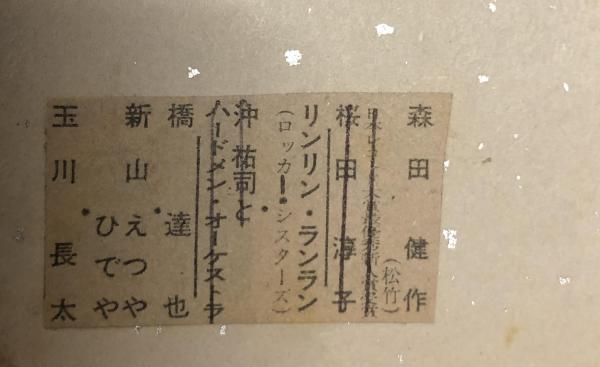 森田健作
(松竹)
日本レコード大賞最優秀新人賞受賞
桜田淳子
リンリン・ランラン
(ロッカー・シスターズ)
沖祐司と
ハードメン・オーケストラ
橋達也
新山えつや
ひでや
玉川長太